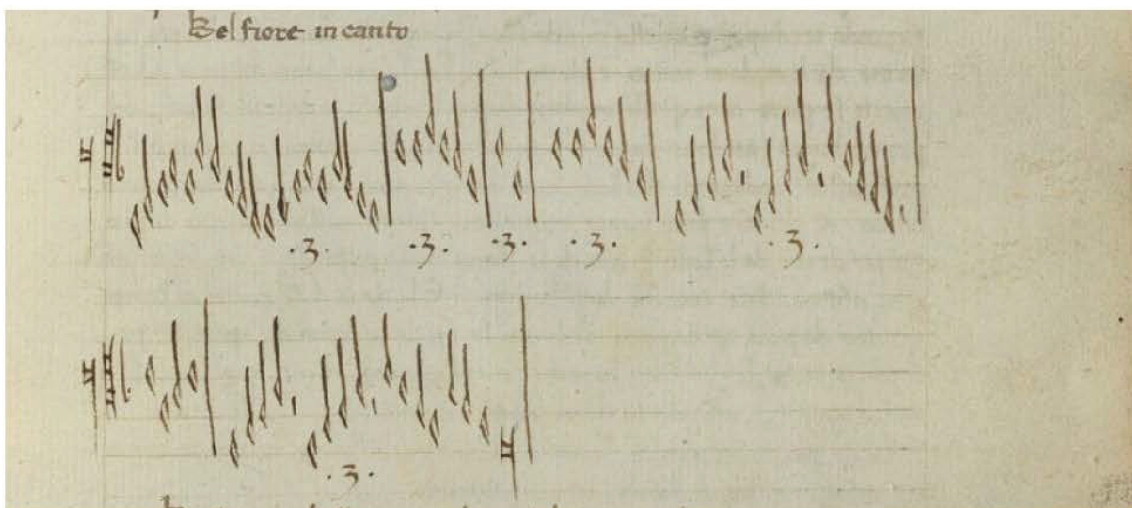 Belfiore in canto
.3. .3. .3. .3. .3.
.3.